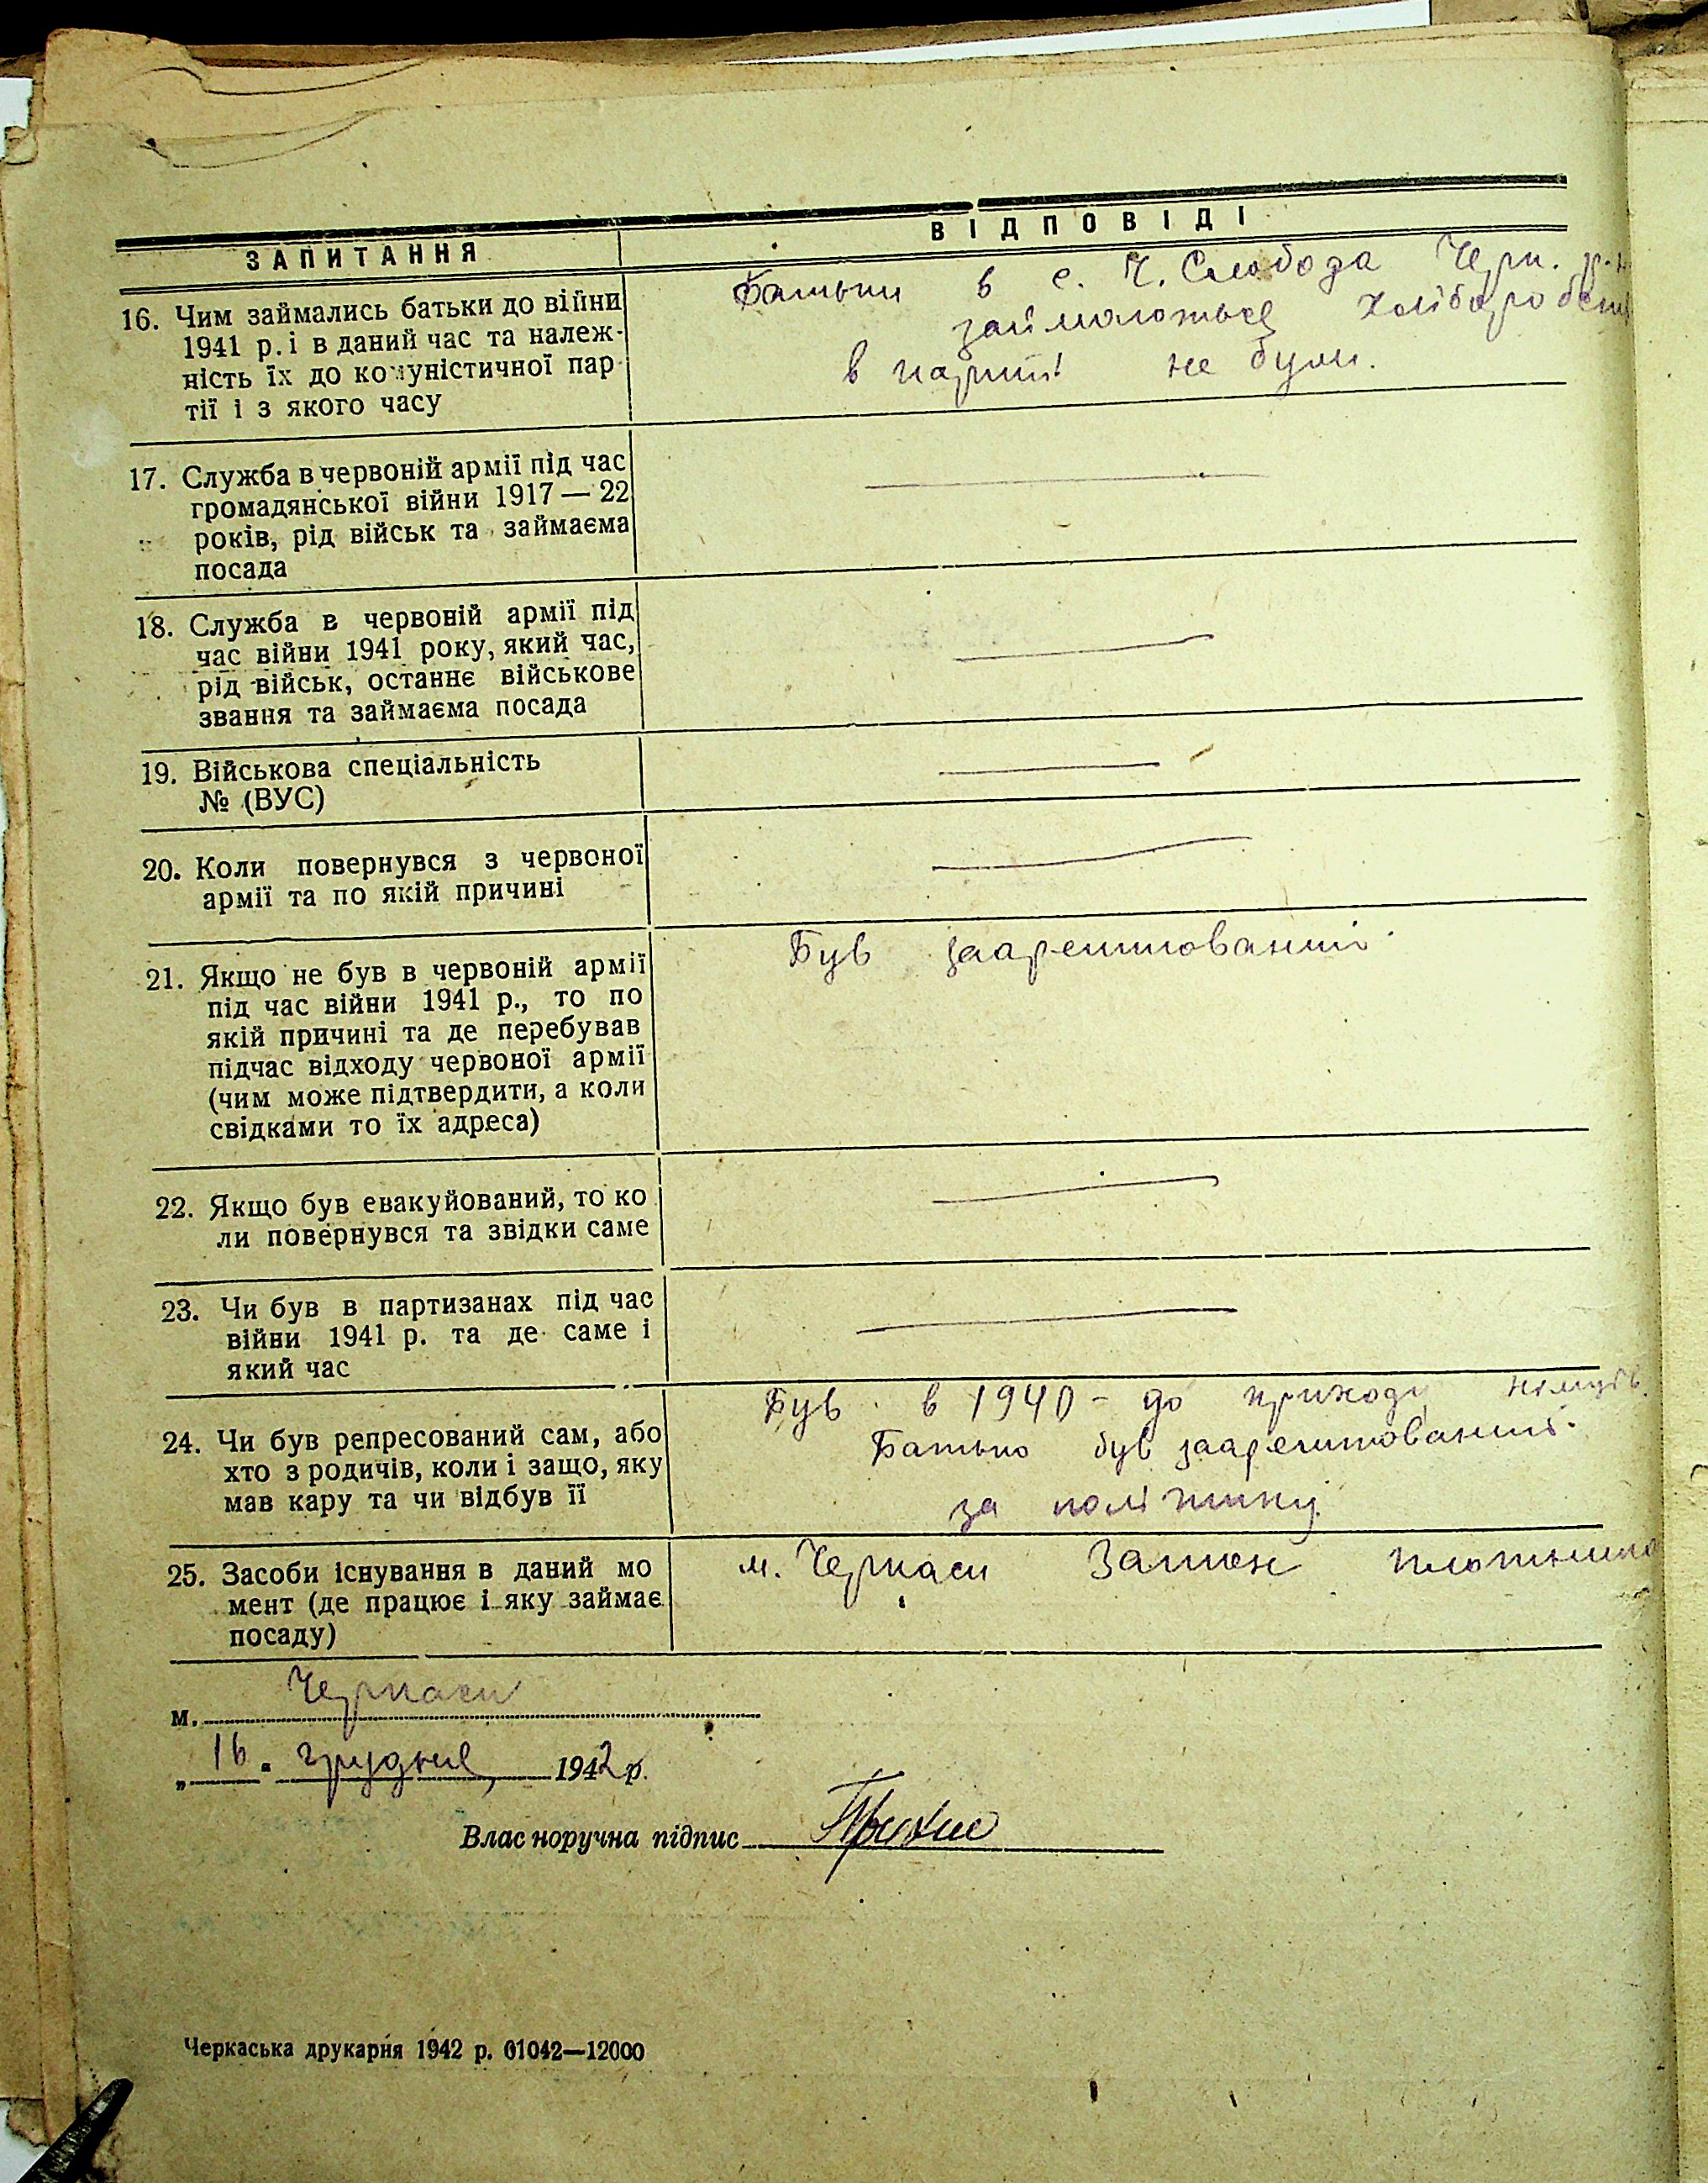 ЗАПИТАННЯ
ВІДПОВІДІ
16. Чим займались батьки до війни
1941 р. і в даний час та належ-
ність їх до комуністичної пар
тії і з якого часу
Батьки в с. Ч. Слобода Черк. р-н
займаються хлібороб
в партії не були.
17. Служба в червоній армії під час
громадянської війни 1917 — 22
років, рід військ та займаєма
посада
18. Служба в червоній армії під
час війни 1941 року, який час,
рід військ, останнє військове
звання та займаєма посада
19. Військова спеціальність
№ (ВУС)
20. Коли повернувся з червоної
армії та по якій причині
21. Якщо не був в червоній армії
під час війни 1941 р., то по
якій причині та де перебував
підчас відходу червоної армії
(чим може підтвердити, а коли
свідками то їх адреса)
Був заарештований
22. Якщо був евакуйований, то ко
ли повернувся та звідки саме
23. Чи був в партизанах під час
війни 1941 р. та де саме і
який час
24. Чи був репресований сам, або
хто з родичів, коли і защо, яку
мав кару та чи відбув її
Був в 1940 - до приходу німців.
Батько був заарештований
за політику
25. Засоби існування в даний мо
мент (де працює і яку займає
посаду)
м. Черкаси
м. Черкаси
„ 16 " грудня, 1942 р.
Власноручна підпис
Черкаська друкарня 1942 р. 01042—12000